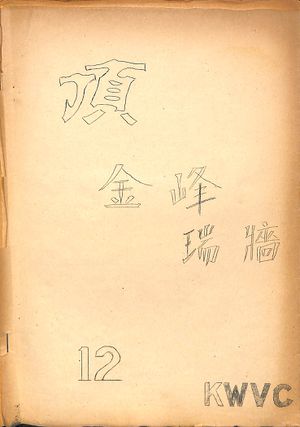 頂
金峰
瑞牆
12
KWVC